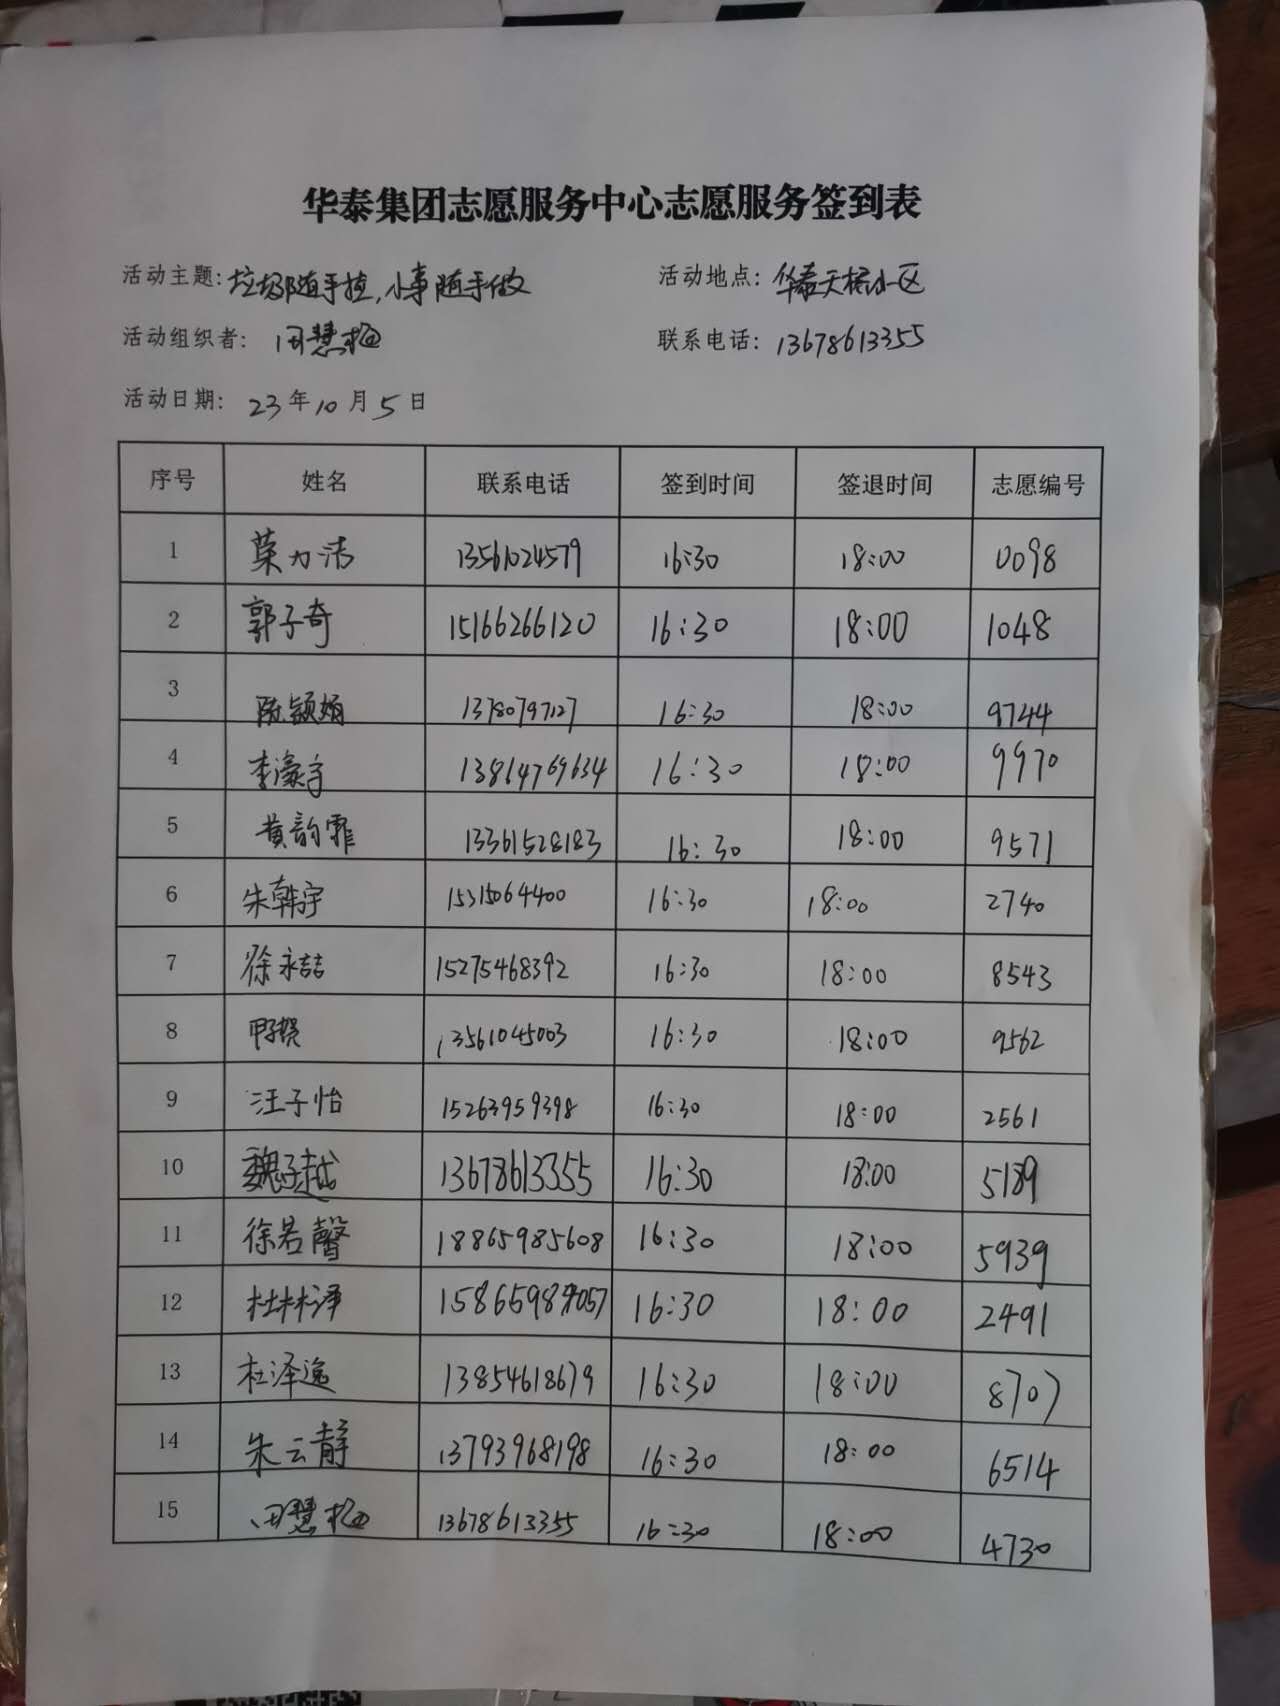 华泰集团志愿服务中心志愿服务签到表
活动主题: 垃圾随手捡,小事随手做 活动地点: 华泰天橘小区
活动组织者: 田慧梅 联系电话: 13678613355
活动日期: 23年10月5日
序号 姓名 联系电话 签到时间 签退时间 志愿编号
1 13561024579 16:30 18:00 0098
2 郭子奇 15166266120 16:30 18:00 1048
3 陈颖娟 13780797127 16:30 18:00 9744
4 李濠宇 13864769634 16:30 18:00 9970
5 黄韵霏 13361528183 16:30 18:00 9571
6 朱韩宇 15315064400 16:30 18:00 2740
7 徐永喆 15275468392 16:30 18:00 8543
8 13561045003 16:30 18:00 9562
9 汪子怡 15263959398 16:30 18:00 2561
10 魏子越 13678613355 16:30 18:00 5189
11 徐若馨 18865985608 16:30 18:00 5939
12 杜林泽 16:30 18:00 2491
13 杜泽逸 13854618679 16:30 18:00 8707
14 朱云静 13793968198 16:30 18:00 6514
15 田慧梅 13678613355 16:30 18:00 4730